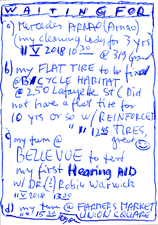 WAITING FOR
a) Mercedes ARNAO (Arnao)
my cleaning lady for 3 yrs
11 V 2018 10 30 @ 319 grand
b) my FLAT TIRE to be fixed
@ BICYCLE HABITAT
@ 250 Lafayette St ( Did
not have a flat tire for
10 yrs or so w/ REINFORCED
TIRES,
c) my turn @
BELLEVUE to test
my first Hearing AID
w/ DR (?) Robin Warwick
11 V 2018 13 20
d) my turn @ FARMERS MARKET
UNION SQUARE